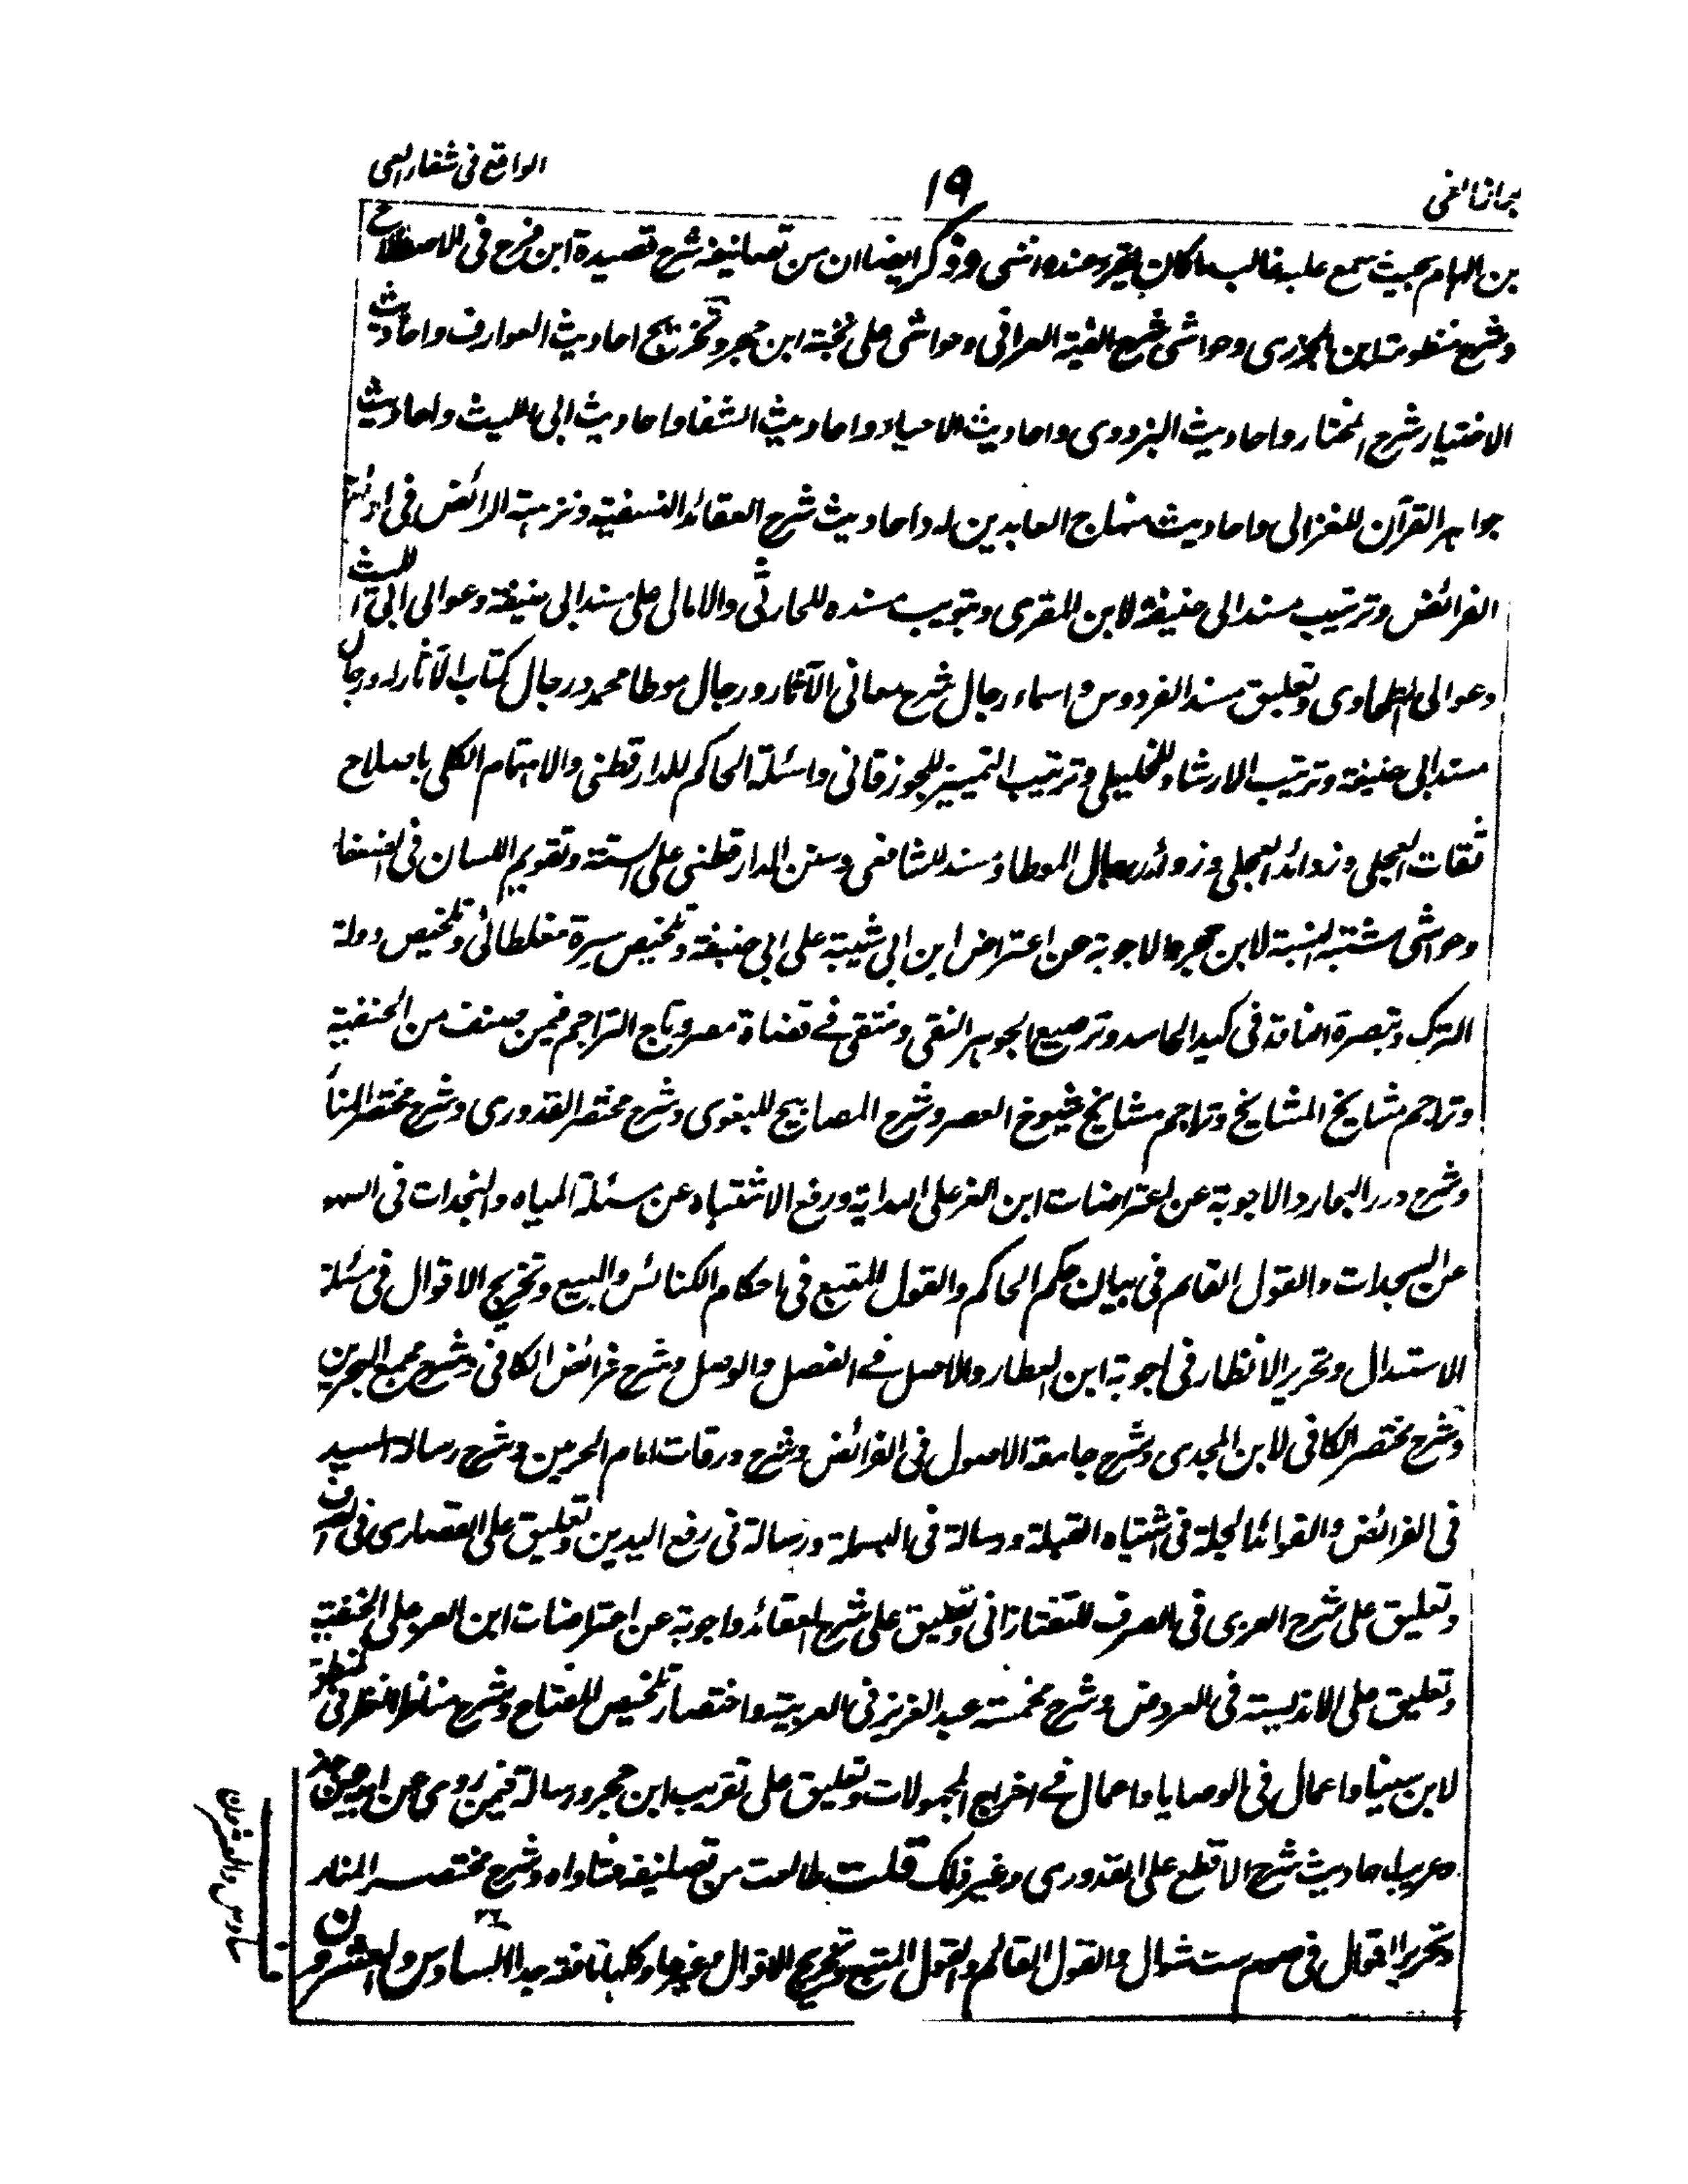 الواقع في شفاء العي
١٩
بن الهمام بحيث سمع عليه غالب ما كان يقرء عنده انتهى وذكر ايضا ان من تصانيفه شرح قصيدة ابن فرح في الاصطلاح
وشرح منظومة ابن الجزري وحواشي شرح الفية العراقي وحواشي على نخبة ابن حجر وتخريج احاديث العوارف واحاديث
الاختيار شرح المختار واحاديث البزدوي واحاديث الاحياء واحاديث الشفا واحاديث ابي الليث واحاديث
جواهر القرآن للغزالي واحاديث منهاج العابدين له واحاديث شرح العقائد النسفية ونزهة الرائض في ادلة
الفرائض وترتيب مسند ابي حنيفة لابن المقري وتبويب مسنده للحارثي والامالي على مسند ابي حنيفة وعوالي ابي الليث
وعوالي الطحاوي وتعليق مسند الفردوس واسماء رجال شرح معاني الآثار ورجال موطا محمد ورجال كتاب الآثار له ورجال
مسند ابي حنيفة وترتيب الارشاد للخليلي وترتيب التمييز للجوزقاني واسئلة الحاكم للدارقطني والاهتمام الكلي باصلاح
ثقات العجلي وزوائد العجلي وزوائد رجال الموطا ومسند الشافعي وسنن الدارقطني على الستة وتقويم اللسان في الضعفا
وحواشي مشتبه النسبة لابن حجر والاجوبة عن اعتراض ابن ابي شيبة على ابي حنيفة وتلخيص سيرة مغلطائي وتلخيص دولة
الترك وتبصرة الناقد في كيد الحاسد وترصيع الجوهر النقي ومنتقى في قضاة مصر وتاج التراجم فيمن صنف من الحنفية
وتراجم مشايخ المشايخ وتراجم مشايخ شيوخ العصر وشرح المصابيح للبغوي وشرح مختصر القدوري وشرح مختصر المنار
وشرح درر البحار والاجوبة عن اعتراضات ابن العز على الهداية ورفع الاشتباه عن مسئلة المياه والنجدات في السهو
عن السجدات والقول القائم في بيان حكم الحاكم والقول المتبع في احكام الكنائس والبيع وتخريج الاقوال في مسئلة
الاستبدال وتحرير الانظار في اجوبة ابن العطار والاصل في الفصل والوصل وشرح فرائض الكافي وشرح مجمع البحرين
وشرح مختصر الكافي لابن المجدي وشرح جامعة الاصول في الفرائض وشرح ورقات امام الحرمين وشرح رسالة السيد
في الفرائض والفوائد الجلة في اشتباه القبلة ورسالة في البسملة ورسالة في رفع اليدين وتعليق على القصاري في الصرف
وتعليق على شرح العزي في الصرف للتفتازاني وتعليق على شرح العقائد واجوبة عن اعتراضات ابن العز على الحنفية
وتعليق على الاندلسية في العروض وشرح مخمسة عبد العزيز في العربية واختصار تلخيص المفتاح وشرح مناظر النظر في المنطق
لابن سينا واعمال في الوصايا واعمال في اخراج المجهولات وتعليق على تقريب ابن حجر ورسالة فيمن روى عن ابيه عن جده
وغريب احاديث شرح الاقطع على القدوري وغير ذلك قلت طالعت من تصانيفه فتاواه وشرح مختصر المنار
وتحرير الاقوال في صوم ست شوال والقول القائم والقول المتبع وتخريج الاقوال وغيرها وكلها نافعة جدا السادس والعشرون
سادس والعشرون